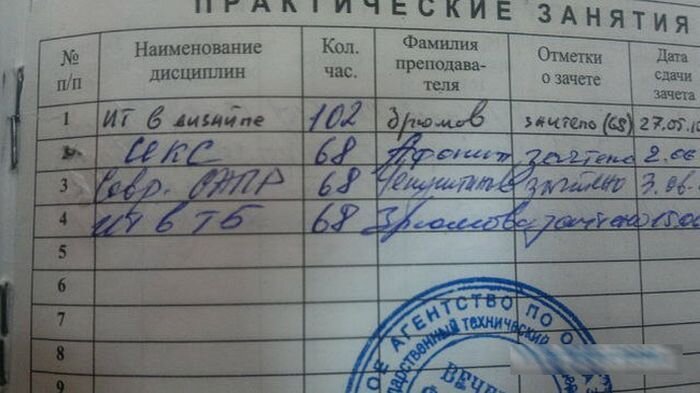 ПРАКТИЧЕСКИЕ ЗАНЯТИЯ
№ п/п Наименование дисциплин Кол. час. Фамилия преподава-теля Отметки о зачете Дата сдачи зачета
1 ИТ в дизайне 102 Зрюмов зачтено (68) 27.05.
СЕКС 68 Афонин зачтено 2.06
3 Совр. САПР 68 зачтено 3.06
4 ИТ в ТБ 68 Зрюмова зачтено 15.0
5
6
7
8
9
АГЕНТСТВО ПО О
технический
ВЕЧЕ